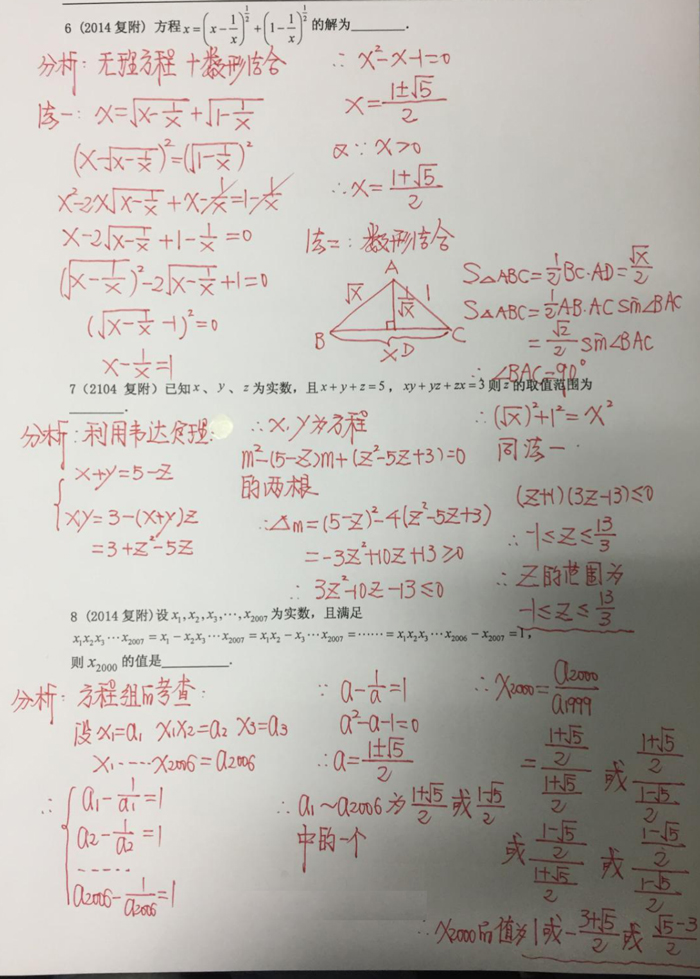 6 (2014 复附) 方程 x=(x-1/x)^{1/2}+(1-1/x)^{1/2} 的解为________.
分析: 无理方程+数形结合
法一: x=√(x-1/x)+√(1-1/x)
(x-√(x-1/x))²=(√(1-1/x))²
x²-2x√(x-1/x)+x-1/x=1-1/x
x-2√(x-1/x)+1-1/x=0
(√(x-1/x))²-2√(x-1/x)+1=0
(√(x-1/x)-1)²=0
x-1/x=1
∴ x²-x-1=0
x=(1±√5)/2
又∵ x>0
∴x=(1+√5)/2
法二: 数形结合
A
√x
1/√x
1
B
C
x D
S△ABC=1/2 BC·AD=√x/2
S△ABC=1/2 AB·AC sin∠BAC
=√x/2 sin∠BAC
∴ ∠BAC=90°
∴(√x)²+1²=x²
同法一.
7 (2104 复附) 已知 x、y、z 为实数，且 x+y+z=5， xy+yz+zx=3 则 z 的取值范围为
________.
分析: 利用韦达定理:
x+y=5-z
xy=3-(x+y)z
=3+z²-5z
∴x,y为方程
m²-(5-z)m+(z²-5z+3)=0
的两根
∴△m=(5-z)²-4(z²-5z+3)
=-3z²+10z+13≥0
∴ 3z²-10z-13≤0
(z+1)(3z-13)≤0
∴ -1≤z≤13/3
∴ z的范围为
-1≤z≤13/3
8 (2014 复附) 设 x₁,x₂,x₃,⋯,x₂₀₀₇ 为实数，且满足
x₁x₂x₃⋯x₂₀₀₇=x₁-x₂x₃⋯x₂₀₀₇=x₁x₂-x₃⋯x₂₀₀₇=⋯⋯=x₁x₂x₃⋯x₂₀₀₆-x₂₀₀₇=1，
则 x₂₀₀₀ 的值是________.
分析: 方程组的考查:
设 x₁=a₁ x₁x₂=a₂ x₃=a₃
x₁⋯⋯x₂₀₀₆=a₂₀₀₆
∴ a₁-1/a₁=1
a₂-1/a₂=1
⋯⋯
a₂₀₀₆-1/a₂₀₀₆=1
∵ a-1/a=1
a²-a-1=0
∴a=(1±√5)/2
∴ a₁~a₂₀₀₆为(1+√5)/2或(1-√5)/2
中的一个
∴x₂₀₀₀=a₂₀₀₀/a₁₉₉₉
=((1+√5)/2)/((1+√5)/2) 或 ((1+√5)/2)/((1-√5)/2)
或 ((1-√5)/2)/((1+√5)/2) 或 ((1-√5)/2)/((1-√5)/2)
∴ x₂₀₀₀的值为1或-(3+√5)/2或(√5-3)/2